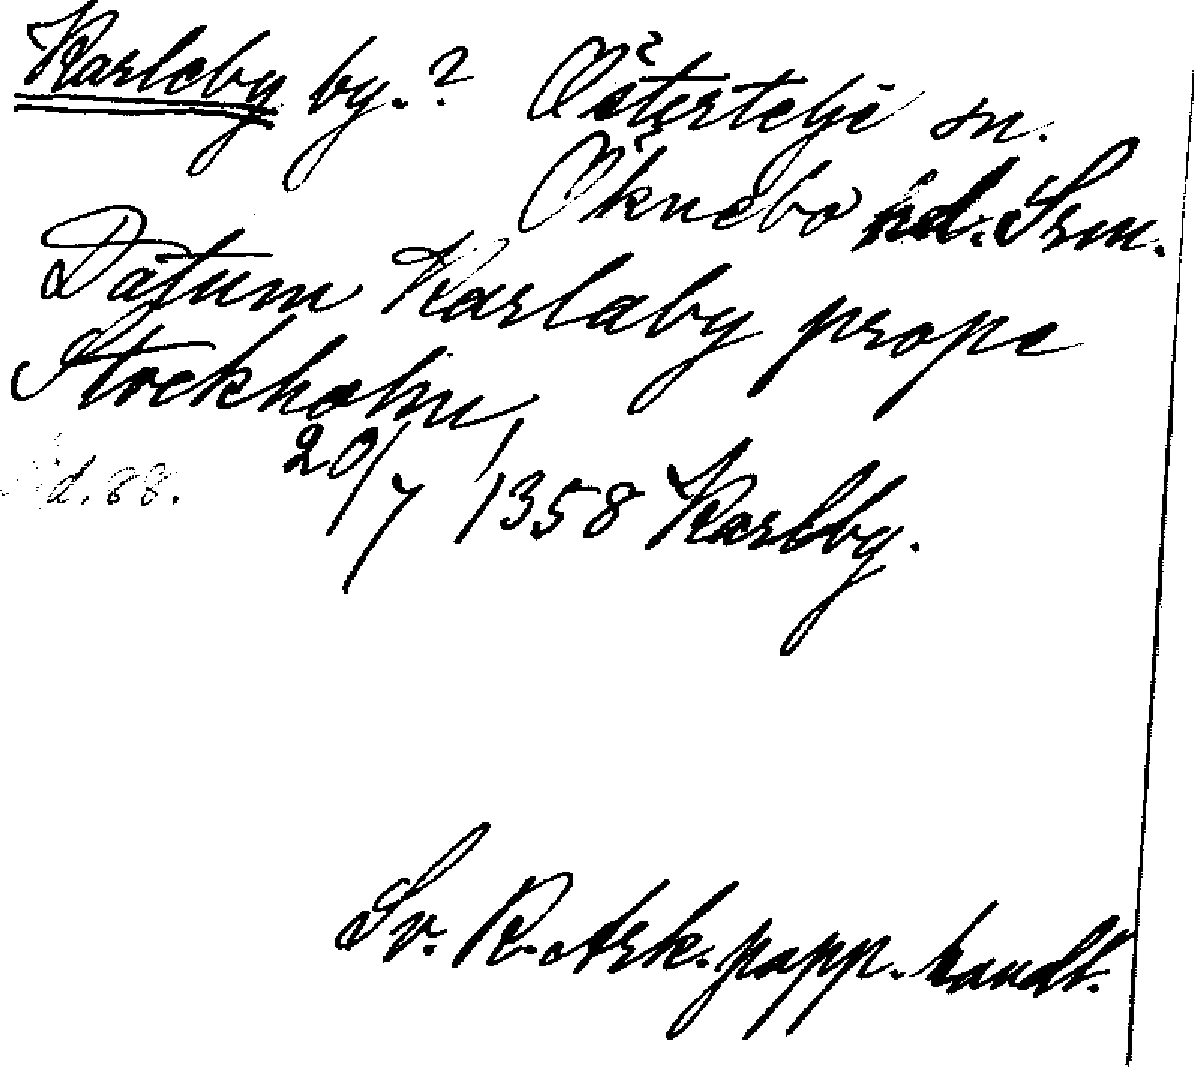 Karleby by.? Östertelje sn.
Öknebo hd. Srm.
Datum Karlaby prope
Stockholm,
20/7 1358 Karlby.
d. 88.
Sv. R. Ark. papp. handl.